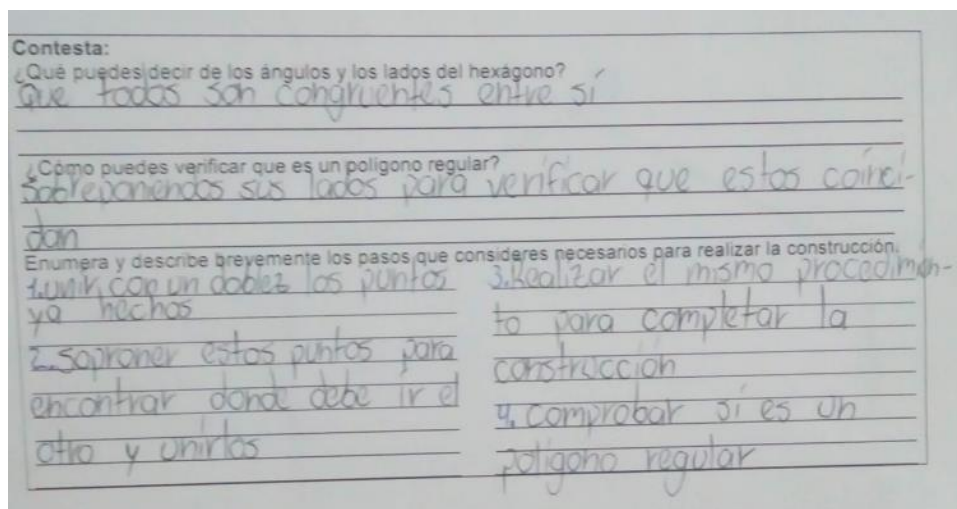 Contesta:
¿Qué puedes decir de los ángulos y los lados del hexágono?
Que todos son congruentes entre sí
¿Cómo puedes verificar que es un polígono regular?
Sobreponiendos sus lados para verificar que estos coinci-
dan
Enumera y describe brevemente los pasos que consideres necesarios para realizar la construcción.
1. unir con un doblez los puntos
ya hechos
2. Soproner estos puntos para
encontrar donde debe ir el
otro y unirlos
3. Realizar el mismo procedimien-
to para completar la
construcción
4. comprobar si es un
poligono regular